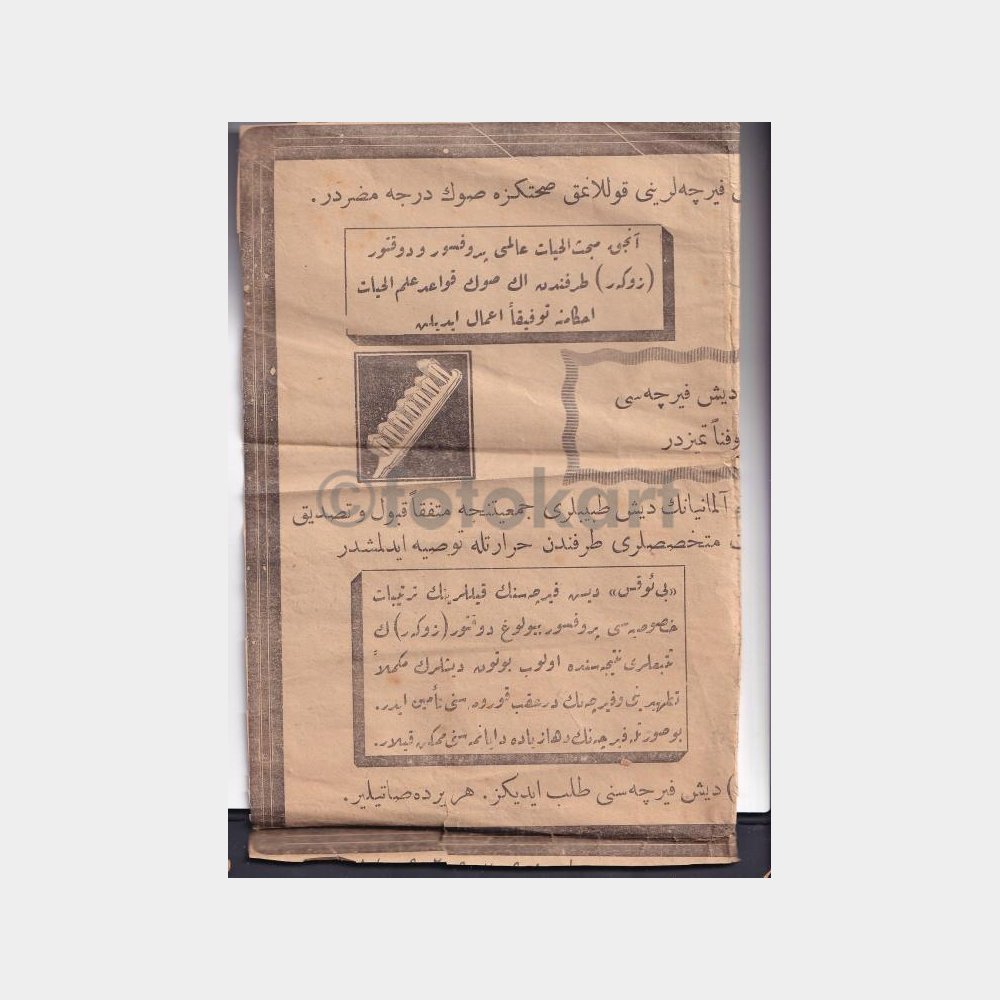 فیرچه‌لرینی قوللانمق صحتكزه صوك درجه مضردر.
آنجق مبحث الحیات عالمی پروفسور و دوقتور
(زوكر) طرفندن اك صوك قواعد علم الحیات
احكامنه توفیقاً اعمال ایدیلن
دیش فیرچه‌سی
وفناً تمیزدر
©fotokart
آلمانیانك دیش طبیبلری جمعیتنجه متفقاً قبول و تصدیق
متخصصلری طرفندن حرارتله توصیه ایدلمشدر
«بی ئوقس» دیش فیرچه‌سنك قیللرینك ترتیبات
خصوصیه‌سی پروفسور بیولوغ دوقتور (زوكر) ك
تتبعلری نتیجه‌سنده اولوب بوتون دیشلرك مكملاً
تطهیرینی وفیرچه‌نك درعقب قوروه‌سنی تأمین ایدر.
بوصورتله فیرچه‌نك دها زیاده دایانمه‌سنی ممكن قیلار.
) دیش فیرچه‌سنی طلب ایدیكز. هر یرده صاتیلیر.